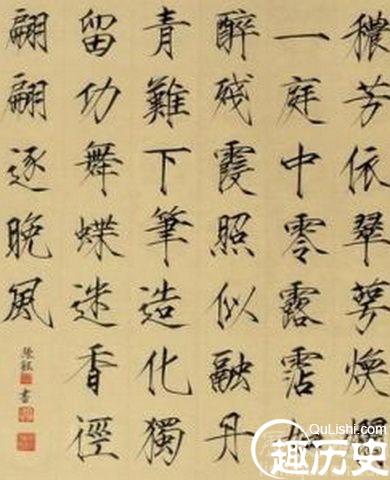 穠芳依翠萼煥爛
一庭中零露霑如
醉殘霞照似融丹
青難下筆造化獨
留功舞蝶迷香徑
翩翩逐晚風
書
QuLiShi.com
趣历史